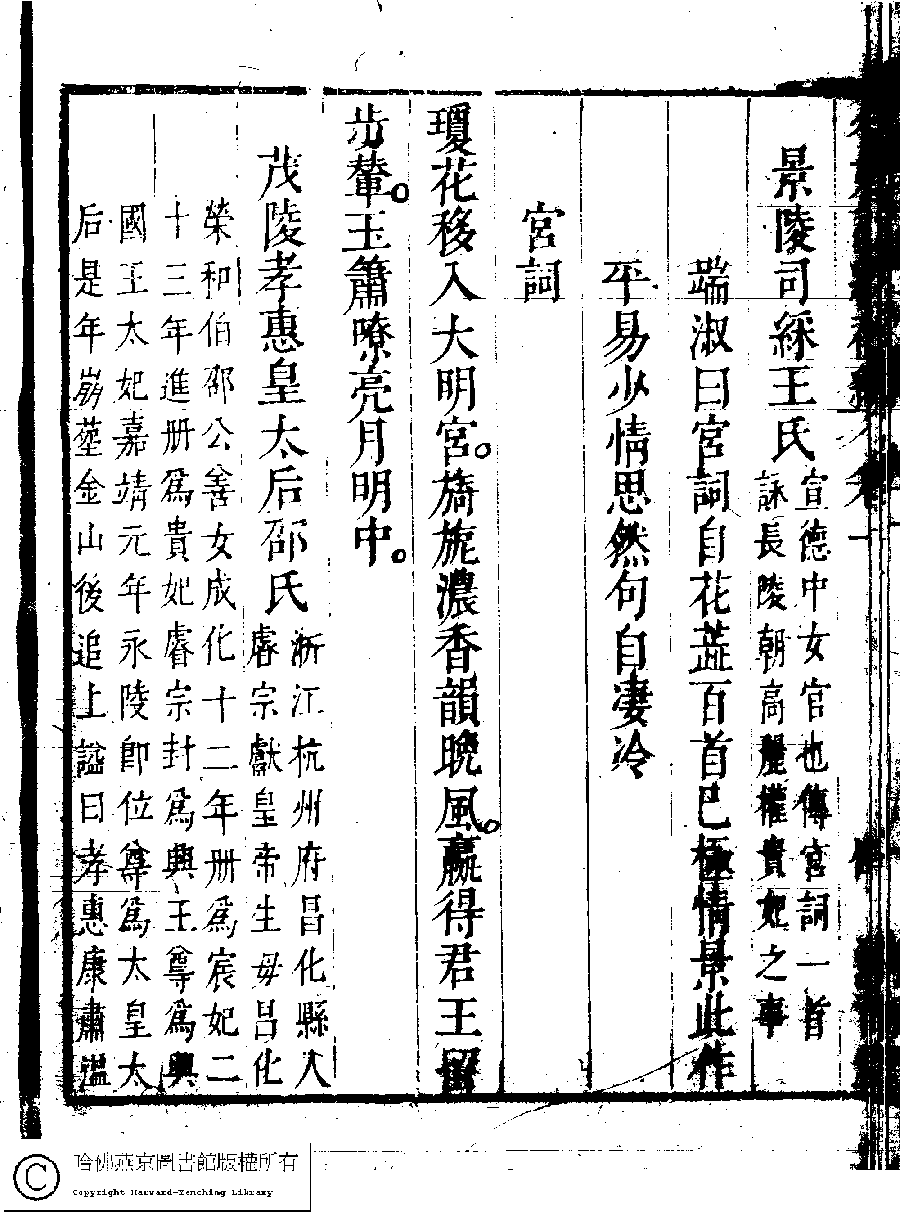 景陵司綵王氏
宣德中女官也傳宮詞一首
詠長陵朝高麗權貴妃之事
端淑曰宮詞自花蕋百首已極情景此作
平易少情思然句自凄冷
宮詞
瓊花移入大明宮。旖旎濃香韻晚風。贏得君王留
步輦。玉簫嘹亮月明中。
茂陵孝惠皇太后邵氏
浙江杭州府昌化縣人
睿宗獻皇帝生母昌化
榮和伯邵公善女成化十二年册為宸妃二
十三年進册為貴妃睿宗封為興王尊為興
國王太妃嘉靖元年永陵即位尊為太皇太
后是年崩塟金山後追上諡曰孝惠康肅溫
哈佛燕京圖書館版權所有
Copyright Harvard-Yenching Library